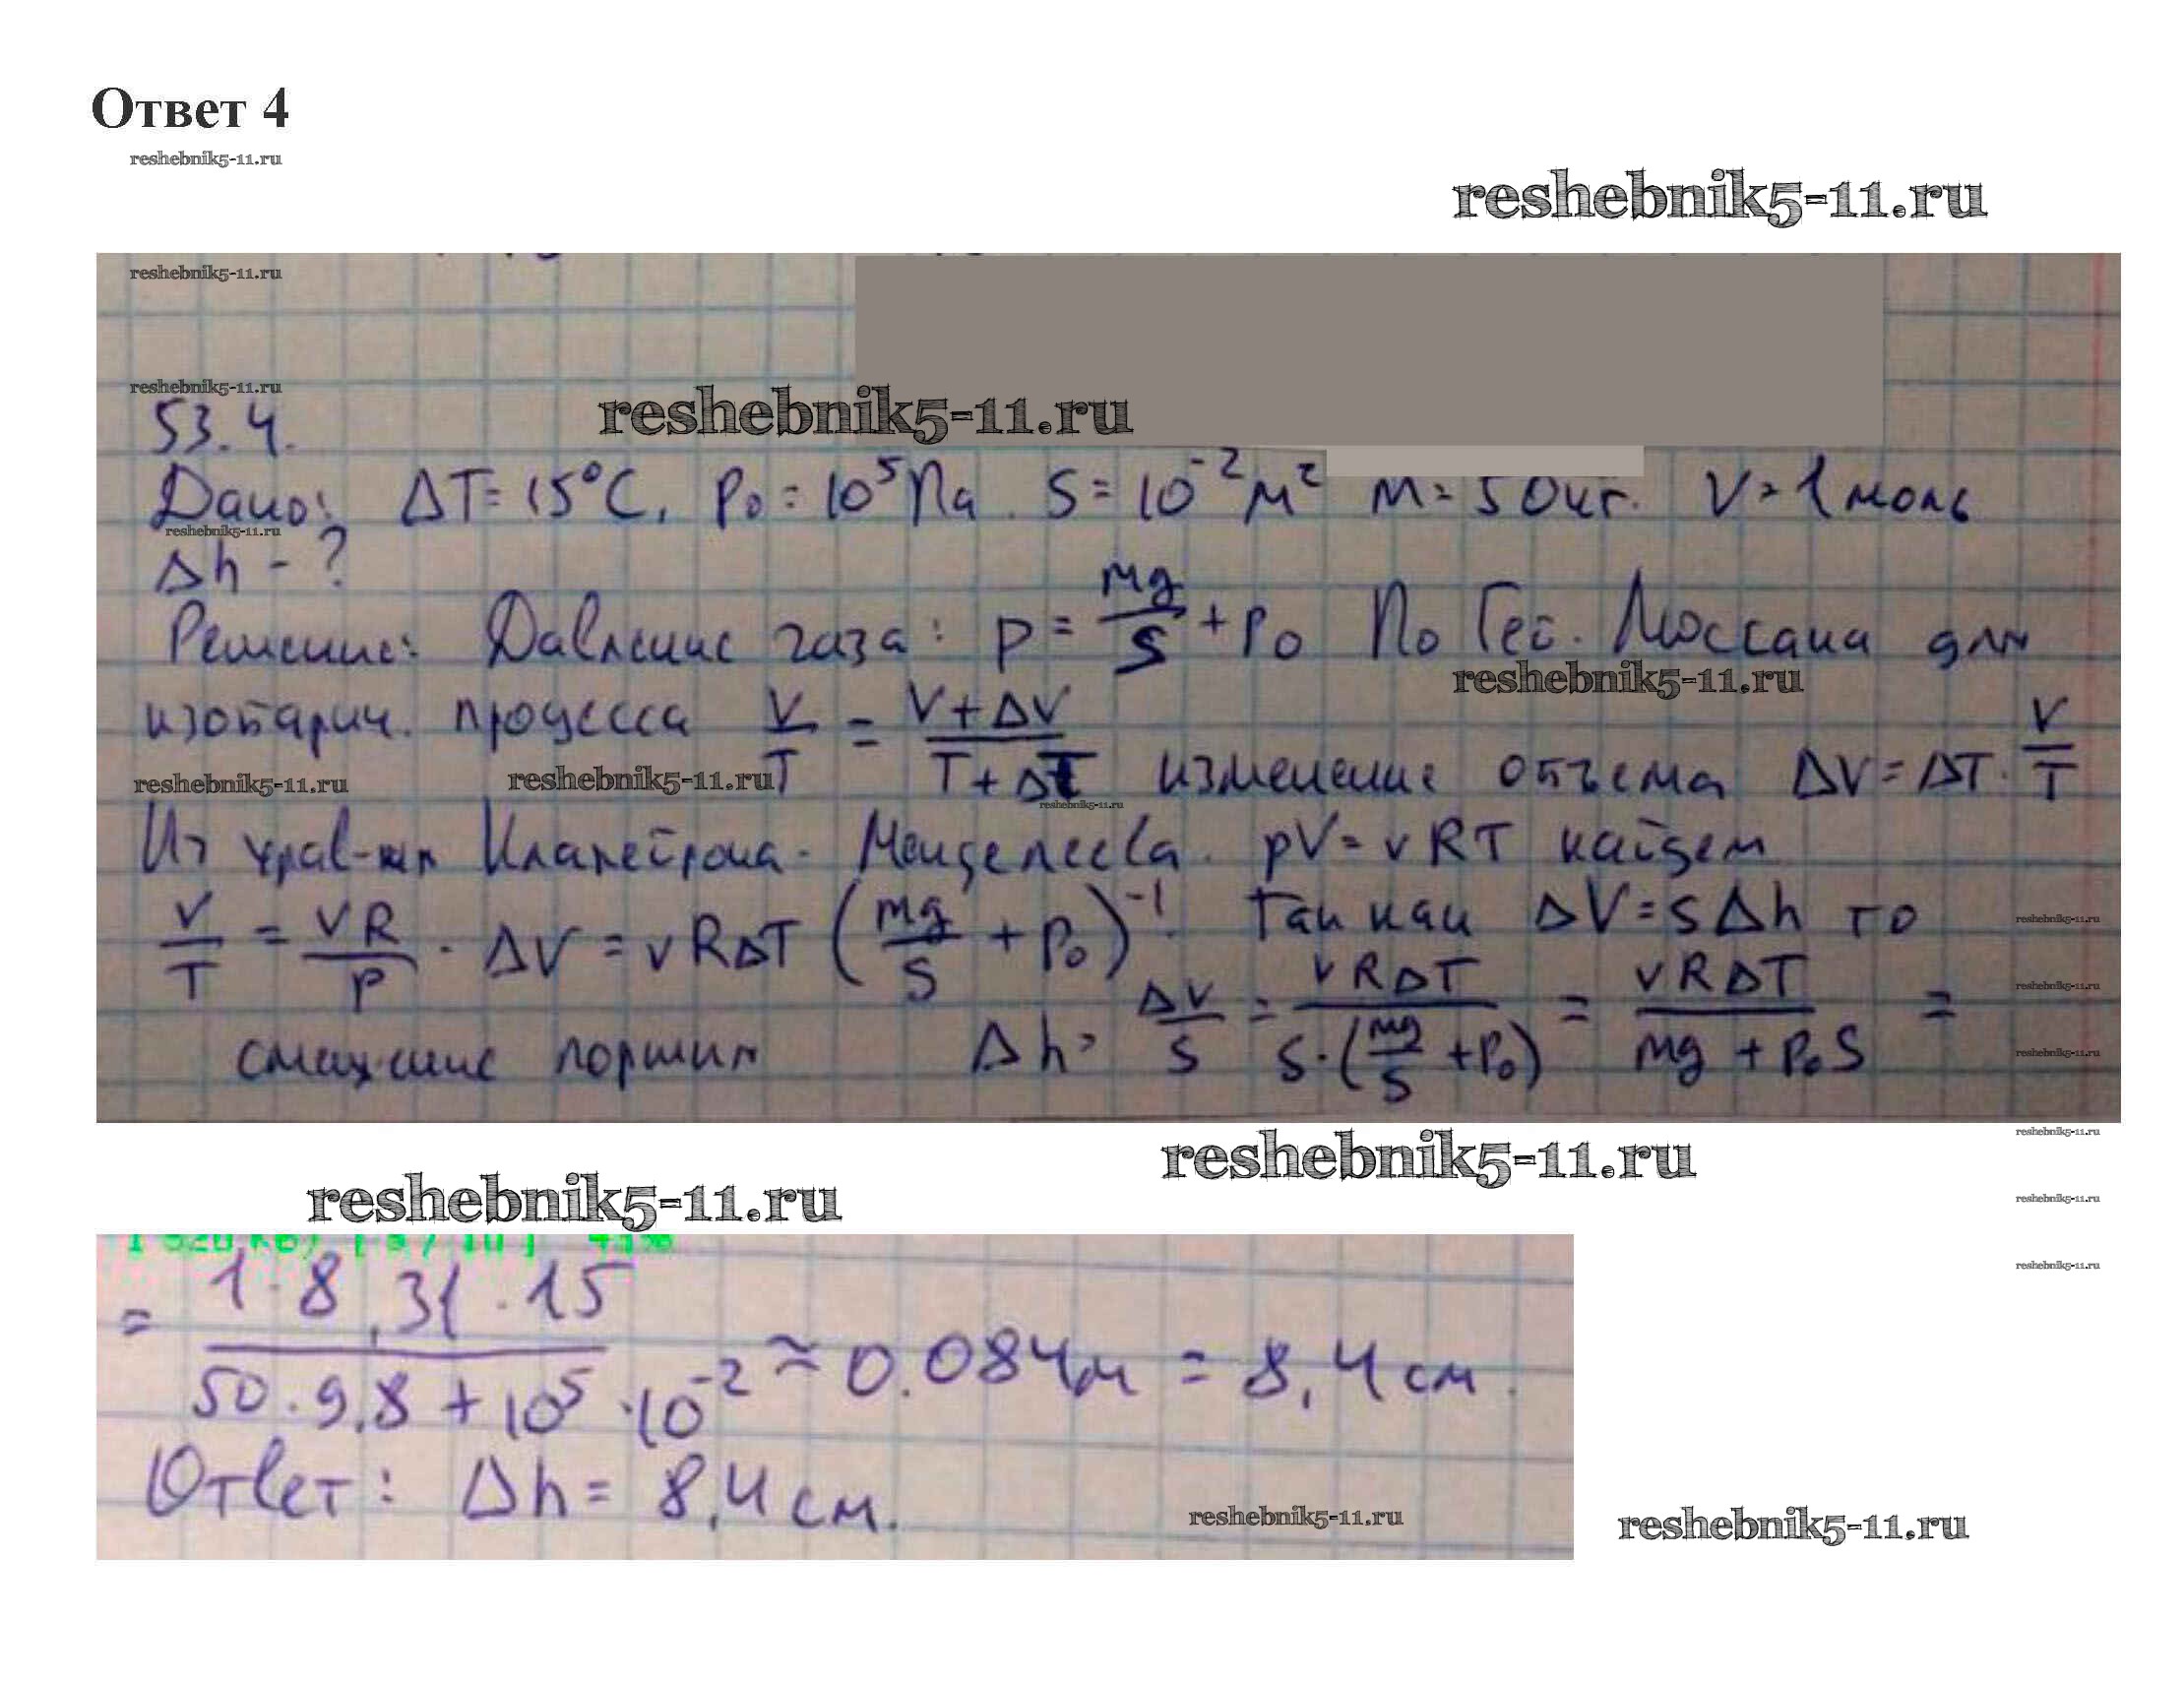 Ответ 4
reshebnik5-11.ru
reshebnik5-11.ru
reshebnik5-11.ru
reshebnik5-11.ru
reshebnik5-11.ru
53.4.
Дано: ΔT=15°C, P₀=10⁵Па. S=10⁻²м² M=50кг. ν=1моль
reshebnik5-11.ru
Δh-?
Решение: Давление газа: p = mg/S + p₀ По Гей. Люссака для
reshebnik5-11.ru
изобарич. процесса V/T = V+ΔV/T+ΔT изменение объема ΔV=ΔT·V/T
reshebnik5-11.ru reshebnik5-11.ru
reshebnik5-11.ru
Из урав-ия Клапейрона-Менделеева. pV=νRT найдем
V/T = νR/P. ΔV=νRΔT (mg/S + P₀)⁻¹. Так как ΔV=SΔh то
reshebnik5-11.ru
reshebnik5-11.ru
смещение поршня Δh = ΔV/S = νRΔT/S·(mg/S+P₀) = νRΔT/mg+P₀S =
reshebnik5-11.ru
reshebnik5-11.ru
reshebnik5-11.ru
reshebnik5-11.ru
reshebnik5-11.ru
reshebnik5-11.ru
= 1·8,31·15/50·9,8+10⁵·10⁻² ≈ 0.084м = 8,4 см.
Ответ: Δh= 8,4 см.
reshebnik5-11.ru
reshebnik5-11.ru